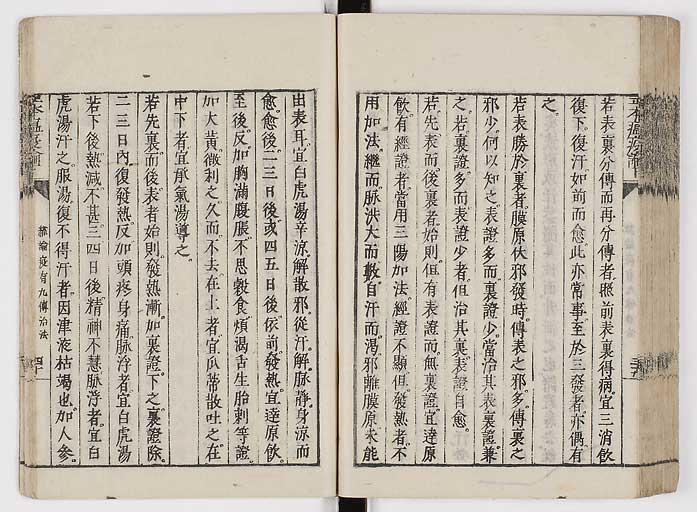 若表裏分傳而再分傳者照前表裏得病宜三消飲
復下復汗如前而愈此亦常事至於三發者亦偶有
之
若表勝於裏者膜原伏邪發時傳表之邪多傳裏之
邪少何以知之表證多而裏證少當治其表裏證兼
之若裏證多而表證少者但治其裏表證自愈
若先表而後裏者始則但有表證而無裏證宜達原
飲有經證者當用三陽加法經證不顯但發熱者不
用加法繼而脉洪大而數自汗而渴邪離膜原未能
出表耳宜白虎湯辛涼解散邪從汗解脉靜身涼而
愈愈後二三日後或四五日後依前發熱宜達原飲
至後反加胸滿腹脹不思穀食煩渴舌生胎刺等證
加大黃微利之久而不去在上者宜瓜蒂散吐之在
中下者宜承氣湯導之
若先裏而後表者始則發熱漸加裏證下之裏證除
二三日內復發熱反加頭疼身痛脉浮者宜白虎湯
若下後熱減不甚三四日後精神不慧脉浮者宜白
虎湯汗之服湯復不得汗者因津液枯竭也加人參
統論疫有九傳治法
四十